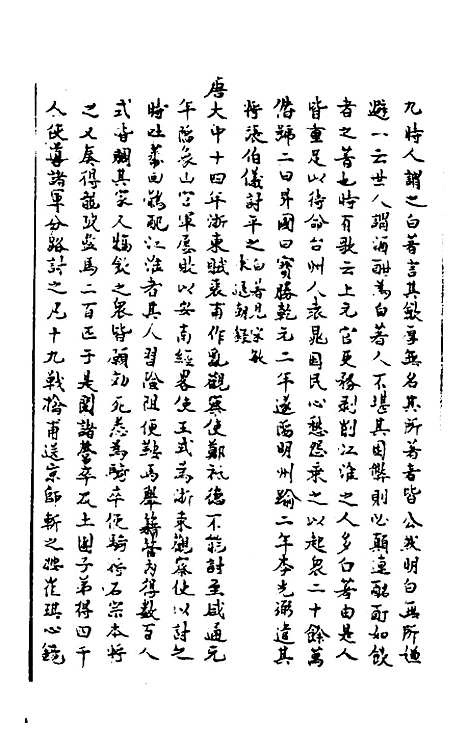 九時人謂之白著言其歛厚無名其所著者皆公然明白無所嫌
避一云世人謂酒酣為白著人不堪其困弊則必顛連酩酊如飲
者之著也時有歌云上元官吏務剥削江淮之人多白著由是人
皆重足以待命台州人袁晁因民心愁怨乘之以起衆二十餘萬
僭號二曰昇國曰寶勝乾元二年遂䧟明州踰二年李光弼遣其
將張伯儀討平之白著見宋敏
求退朝錄
唐大中十四年浙東賊裘甫作亂觀察使鄭祗德不能討至咸通元
年䧟象山官軍屢敗以安南經畧使王式為浙東觀察使以討之
時吐蕃回鶻配江淮者其人習險阻便鞍馬舉籍管内得數百人
式皆賙其家人犒飲之衆皆願効死悉為騎卒使騎將石宗本將
之又奏得龍陂監馬二百匹于是閱諸營卒及土團子弟得四千
人使導諸軍分路討之凡十九戰擒甫送京師斬之<br>崔琪心鏡